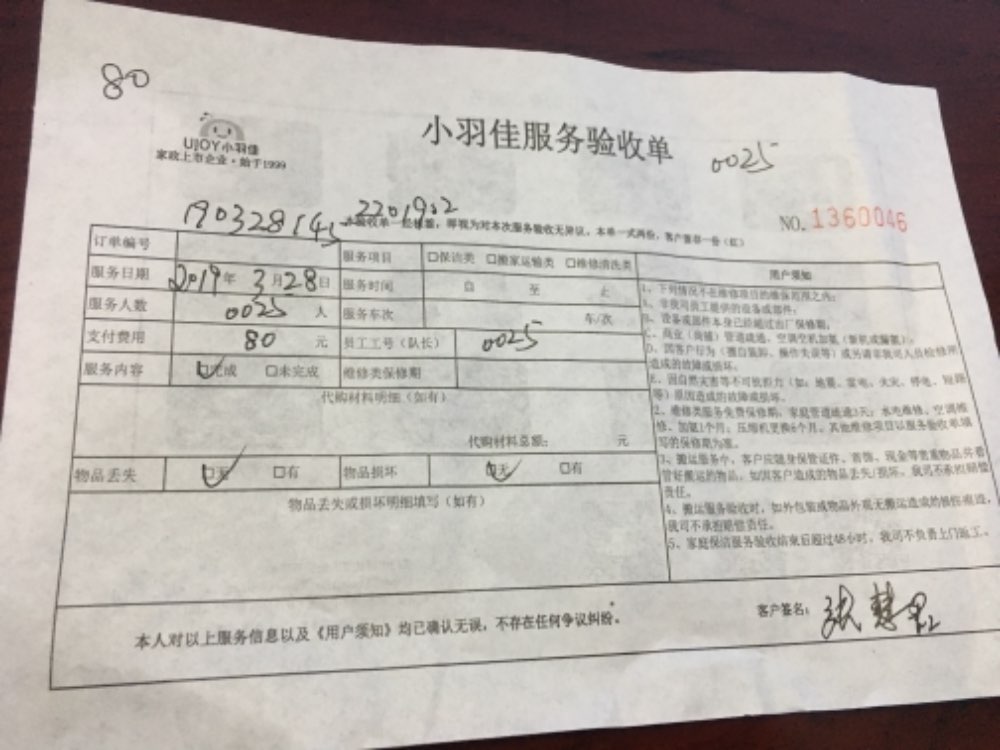 80
UJOY小羽佳
家政上市企业·始于1999
小羽佳服务验收单
0025
190328145 2201902
本验收单一经签署，即视为对本次服务验收无异议。本单一式两份，客户留存一份（红）
NO. 1360046
订单编号 服务项目 □保洁类 □搬家运输类 □维修清洗类
服务日期 2019年 3月28日 服务时间 自 至 止
服务人数 0025 人 服务车次 车/次
支付费用 80 元 员工工号（队长） 0025
服务内容 ☑完成 □未完成 维修类保修期
代购材料明细（如有）
代购材料总额： 元
物品丢失 ☑无 □有 物品损坏 ☑无 □有
物品丢失或损坏明细填写（如有）
用户须知
1、下列情况不在维修项目的维保范围之内：
A、非我司员工提供的设备或部件；
B、设备或部件本身已经超过出厂保修期。
C、商业（商铺）管道疏通，空调空机加氟（新机或漏氟）。
D、因客户行为（擅自装卸、操作失误等）或另请非我司人员检修所
造成的故障或损坏。
E、因自然灾害等不可抗拒力（如：地震、雷电、火灾、停电、短路
等）原因造成的故障或损坏。
2、维修类服务免费保修期：家庭管道疏通3天；水电维修、空调维
修、加氟1个月；压缩机更换6个月。其他维修项目以服务验收单填
写的保修期为准。
3、搬运服务中，客户应随身保管证件、首饰、现金等贵重物品并看
管好搬运的物品，如因客户造成的物品丢失/损坏，我司不承担赔偿
责任。
4、搬运服务验收时，如外包装或物品外观无搬运造成的损伤痕迹，
我司不承担赔偿责任。
5、家庭保洁服务验收结束后超过48小时，我司不负责上门返工。
本人对以上服务信息以及《用户须知》均已确认无误，不存在任何争议纠纷。
客户签名： 张慧